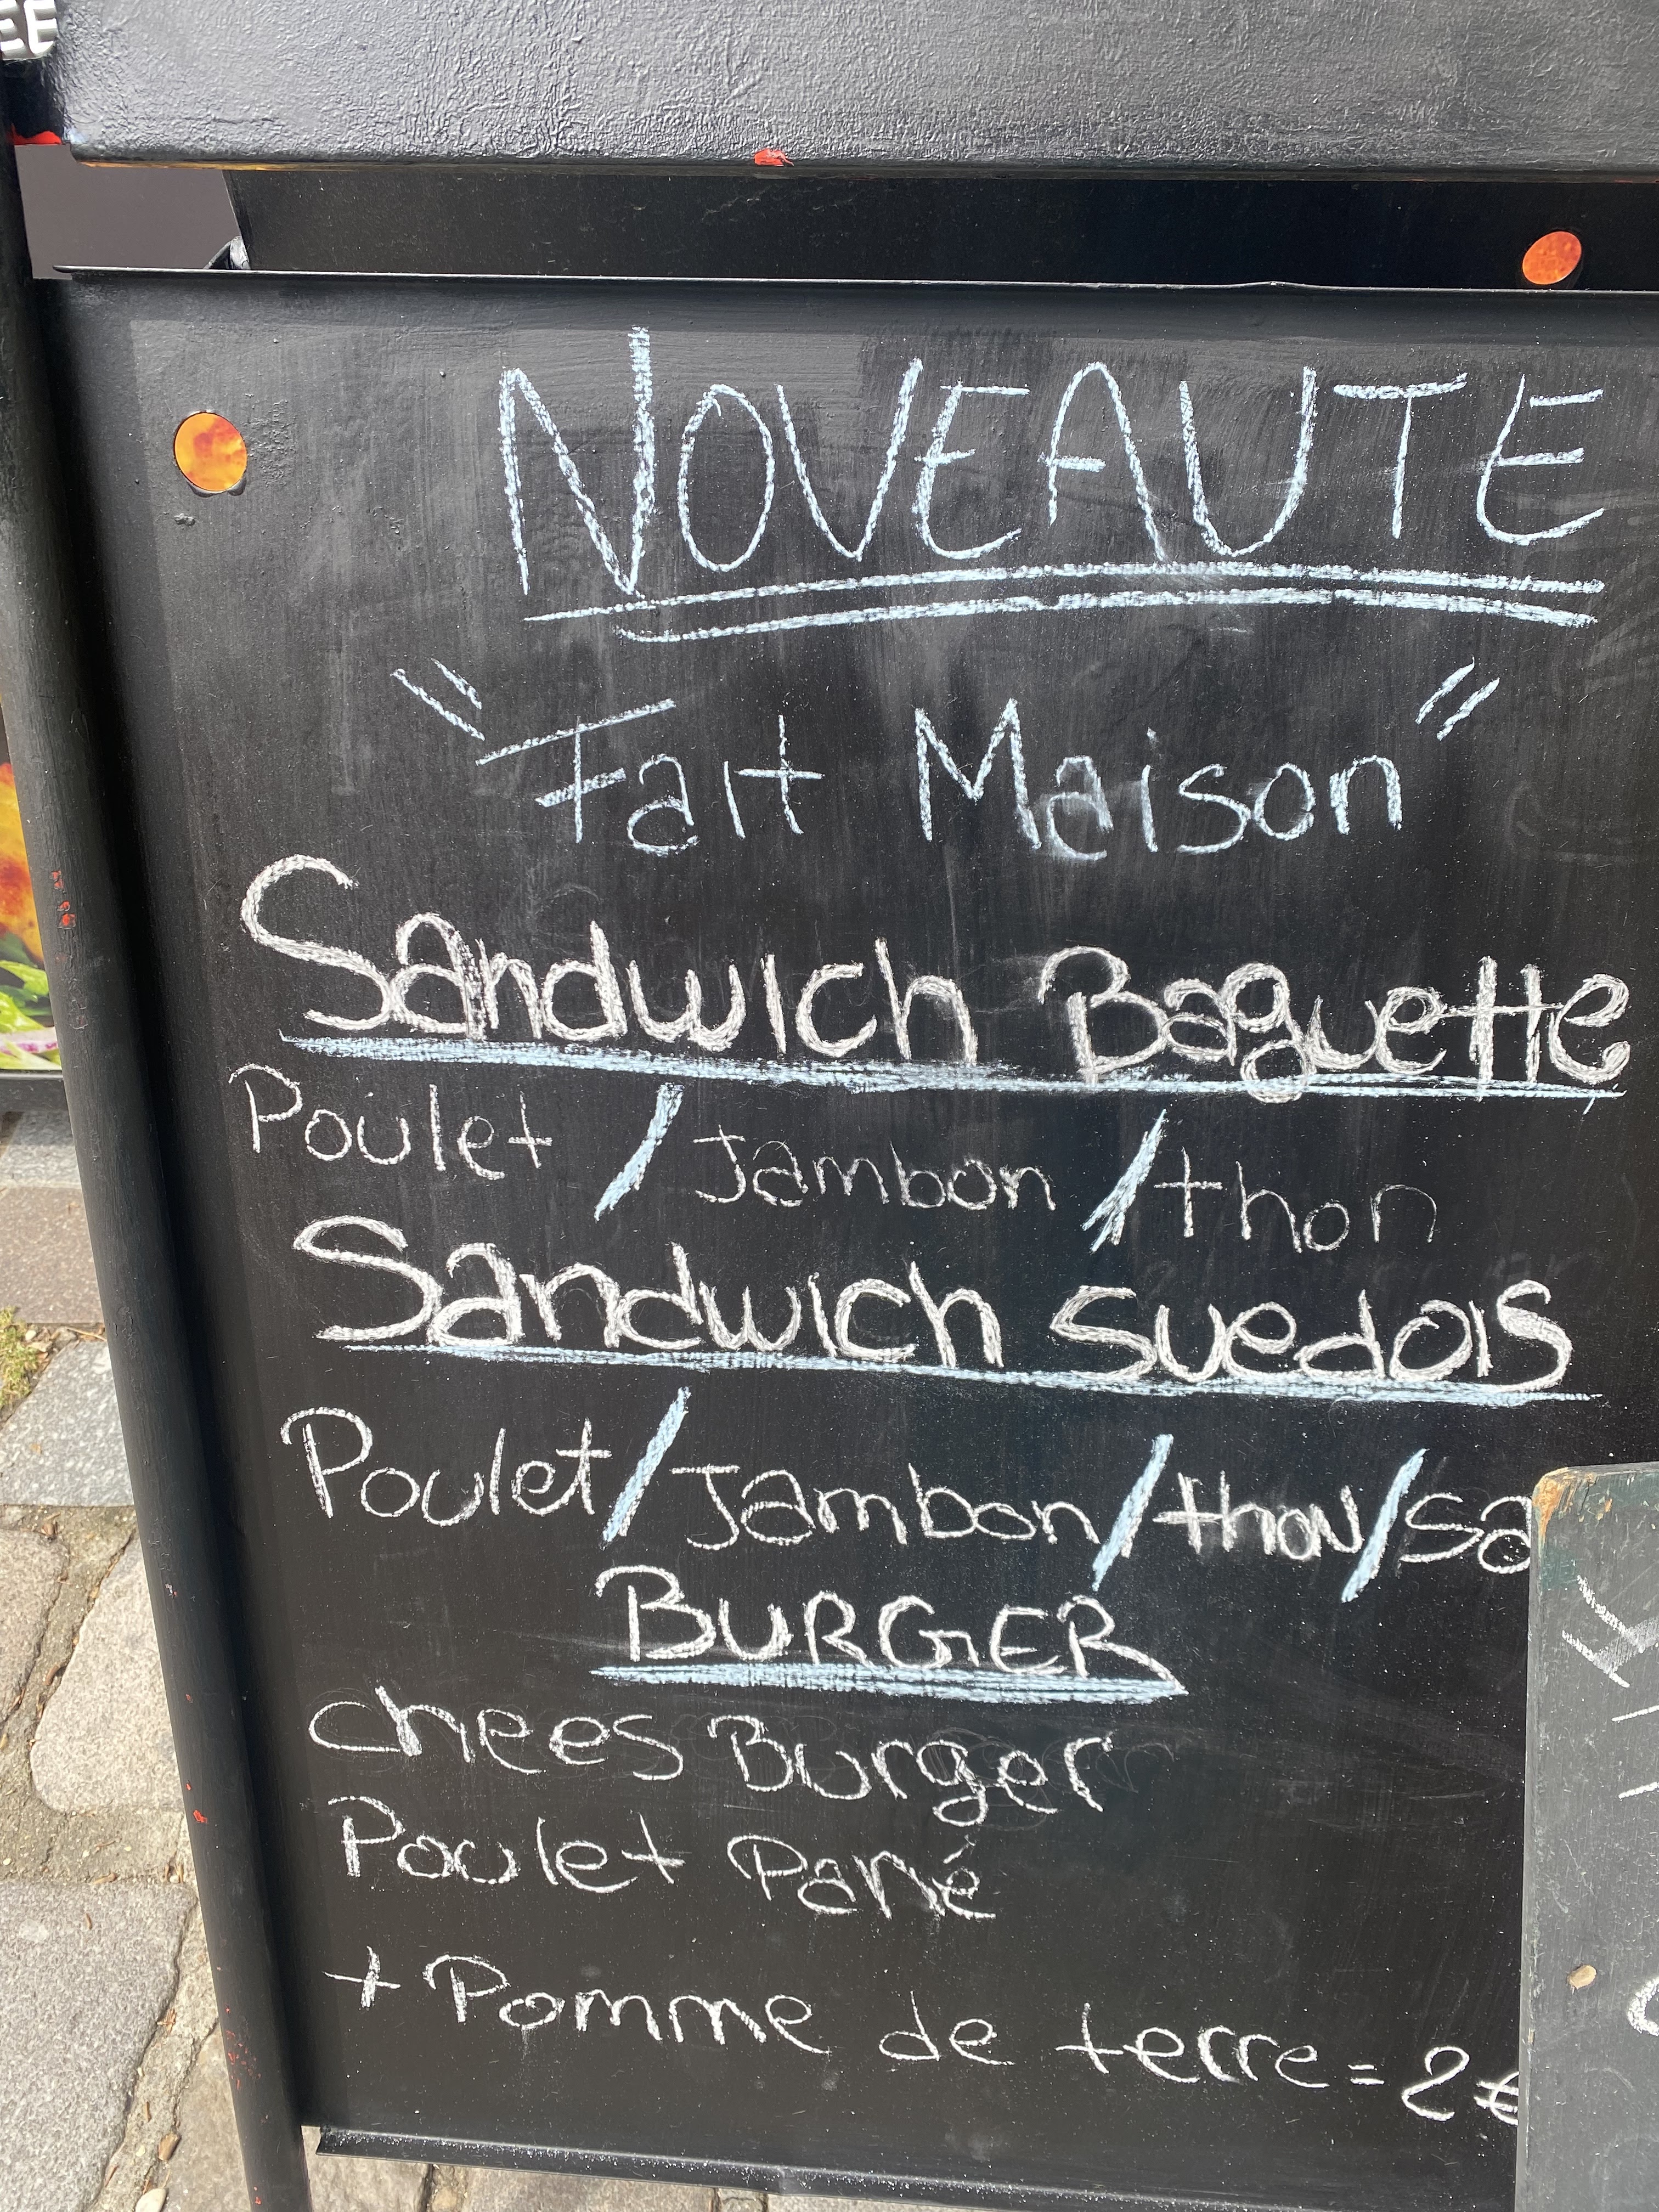 EE
NOVEAUTE
"Fait Maison"
Sandwich Baguette
Poulet / Jambon / thon
Sandwich suedois
Poulet / Jambon / thon / sa
BURGER
chees Burger
Poulet Pané
+ Pomme de terre = 2€